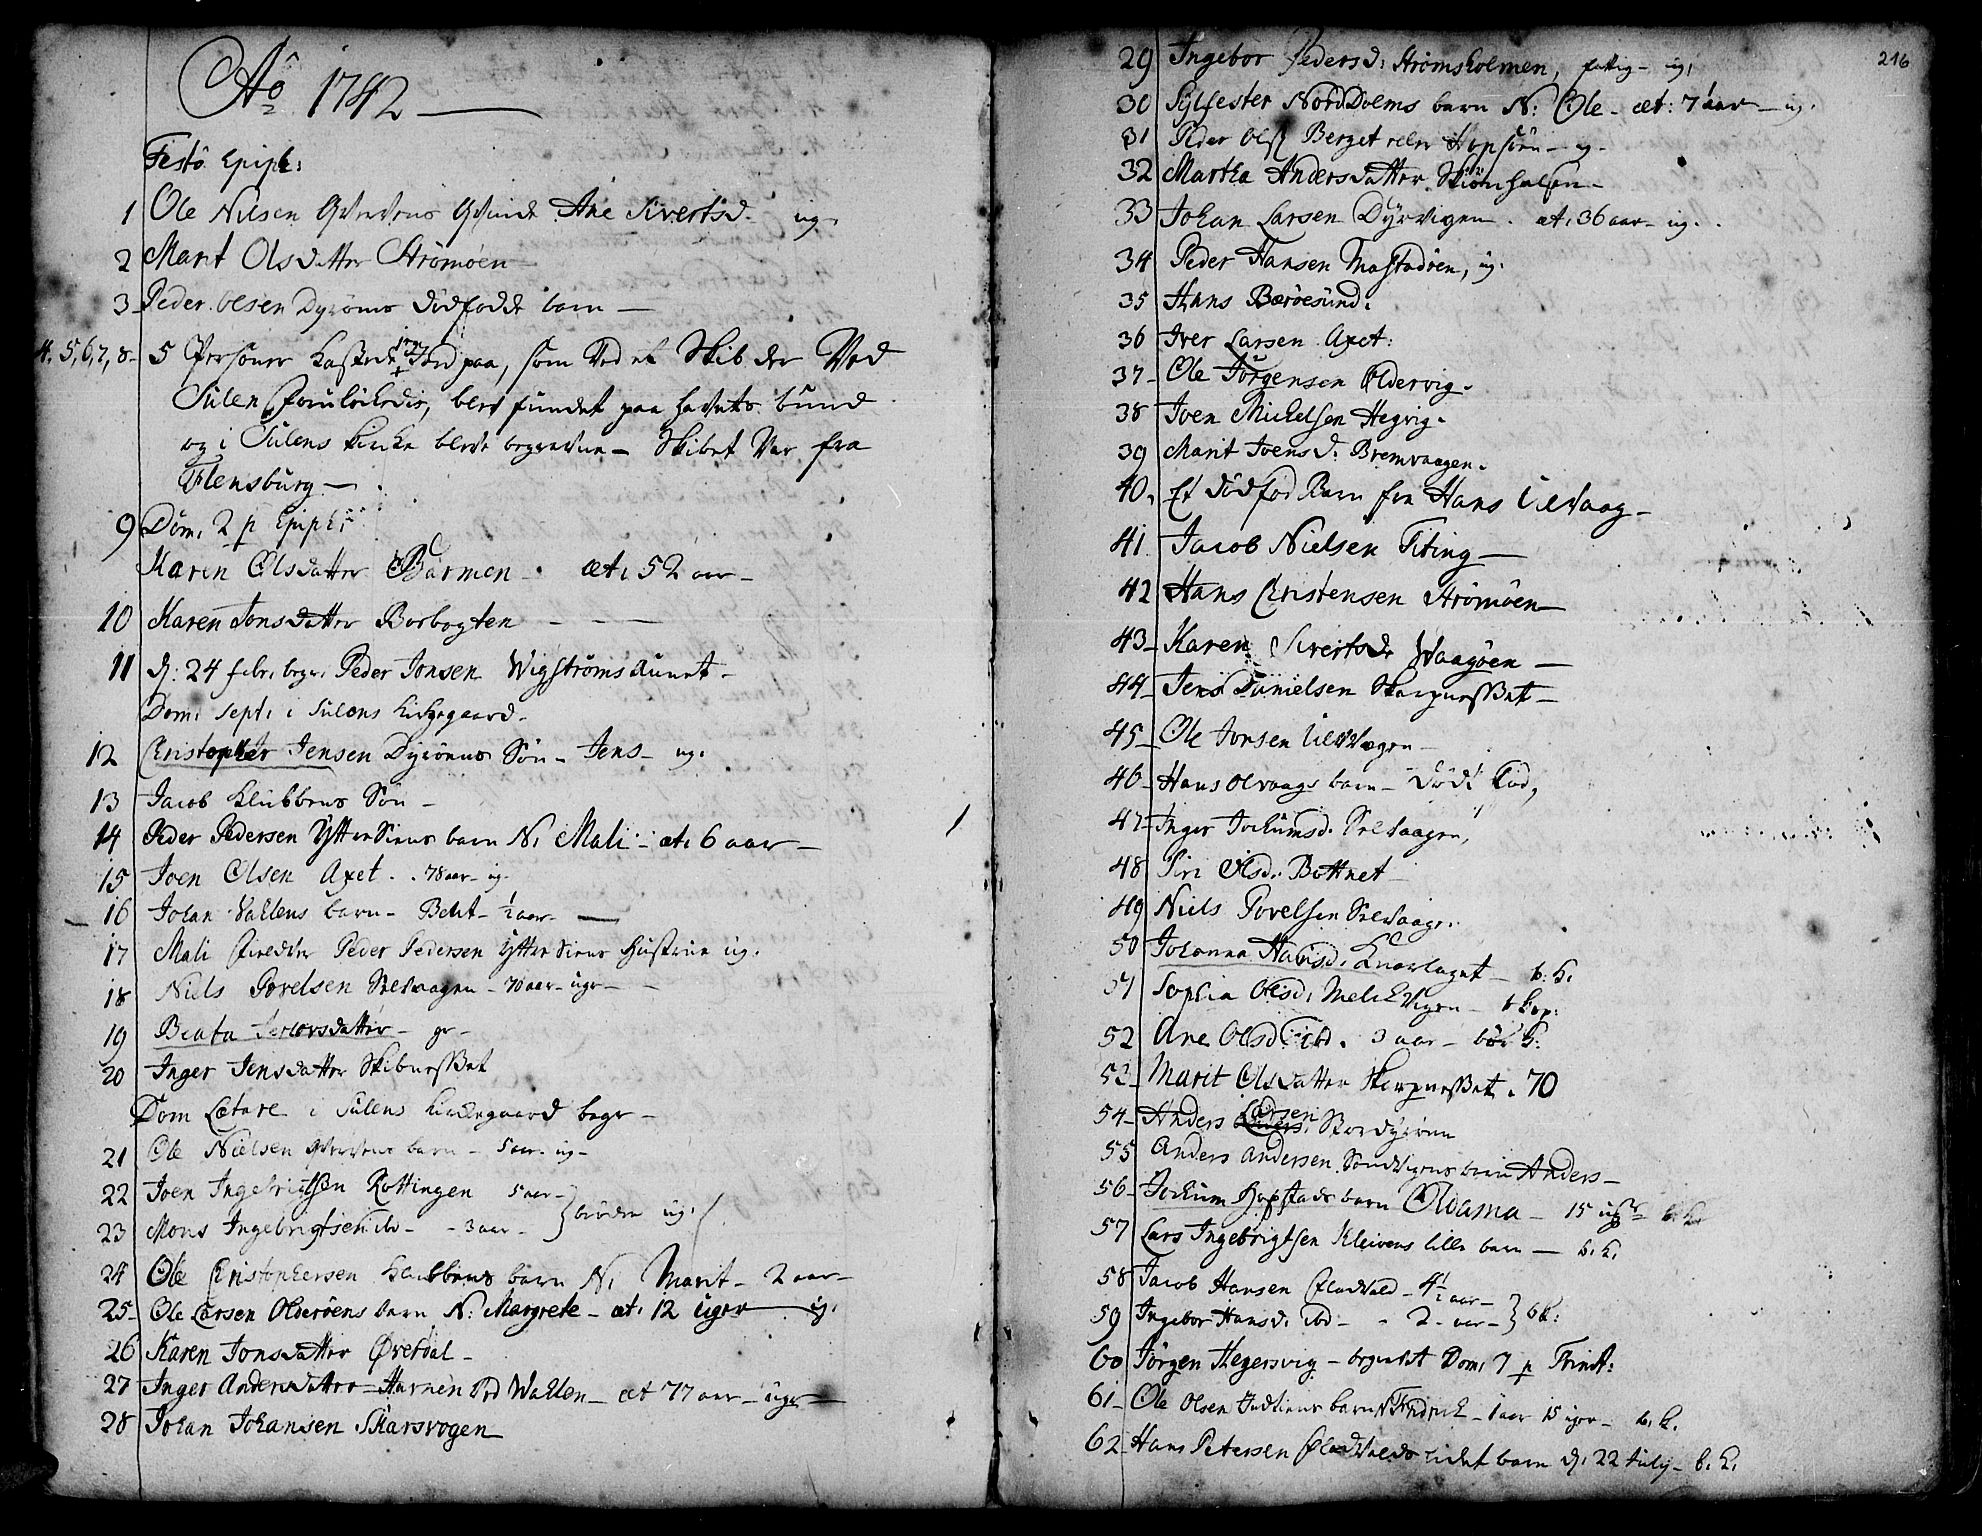 Aô 1742
Festô Epiph:
1 Ole Nilsen Qvinde Ane Sivertsd. ug.
2 Marit Olsdatter Strömöen
3 Peder Olsen Dyröens dödfödde barn
4, 5, 6, 7, 8 5 Personer kastede Jord paa, som Ved et Skib der Ved
Sulen forulickedis, blev fundet paa havets bund
og i Sulens Kircke bleve begravene – Skibet Var fra
Flensburg
9 Dom, 2 p Epiph:
Karen Olsdatter Barmen æt, 52 aar
10 Karen Jonsdatter Borbogten
11 d: 24 febr, begr, Peder Jonsen Wigströmsaunet
Dom, Sept, i Sulens kirkegaard
12 Christopher Jensen Dyröens Sön – Jens – ug.
13 Jacob Klubbens Sön
14 Peder Pedersen Yttersiens barn N, Mali – æt, 6 aar
15 Joen Olsen Axet . . 78 aar – ug.
16 Johan Vahlens barn – Behet – ½ aar
17 Mali Peder Pedersen Yttersiens Hustrue ug.
18 Niels Povelsen Selvaagen – 70 aar
19 Beata
20 Inger Jensdatter Skibnesset
Dom Lætare i Sulens kirckegaard begr
21 Ole Nielsen barn – 5 aar – ug
22 Joen Ingebrigtsen Rottingen 5 aar
23 Mons Ingebrigtsen ibd – 3 aar brödre ug.
24 Ole Christophersen Klubbens barn N, Marit – 2 aar
25 Ole Larsen Olderöens barn N: Margrete – æt, 12 uger ug.
26 Karen Jonsdatter Överdal
27 Inger Andersdatter Wahlen – æt 77 aar
28 Johan Johansen Skarsvogen
216
29 Ingebor Pedersd: Strömsholmen, fattig – ug,
30 Sylfester NordDolms barn N: Ole – æt: 7 aar – ug.
31 Peder Olss Berget Hopsöen – ug
32 Martha Andersdatter
33 Johan Larsen Dyrvigen . æt, 36 aar – ug.
34 Peder Hansen Mastadöen, ug.
35 Hans Baröesund.
36 Iver Larsen Axet:
37 Ole Jörgensen Oldervig.
38 Joen Michelsen Hegvig.
39 Marit Joensd: Bremvaagen.
40, Et dödfød Barn for Hans Ulvaag
41 Jacob Nielsen Titing
42 Hans Christensen Strömöen
43 Karen Sivertsdr Waagöen
44 Jens Danielsen Skarpnesset
45 Ole Jonsen Ulvaagen
46 Hans Olvaags barn – död
47 Inger Jochumsd. Selvaagen,
48 Siri Olsd. Bottnet
49 Niels Povelsen Selvaagr.
50 Johanna Hansd, Knarlaget – b: k.
51 Sophia Olsd, Melckvigen
52 Ane Olsd ibd . 3 aar
53 Marit Olsdatter Skarpnesset . 70
54 Anders Larsen Stordyröen
55 Anders Andersen Sandvigens barn Anders
56 Jochum Hopstads barn Oldama – 15 b: k.
57 Lars Ingebrigtsen Kleivens lille barn – b. k.
58 Jacob Hansen Fladvald – 4½ aar
59 Ingebor Hansd, ibd – 2 aar – bk:
60 Jörgen Hegersvig – begravet Dom, 7 p Trinit:
61 Ole Olsen barn Fridrich – 1 aar 15 uger – b. k.
62 Hans Petersen Fladvalds lidet barn d, 22 July – b. k.